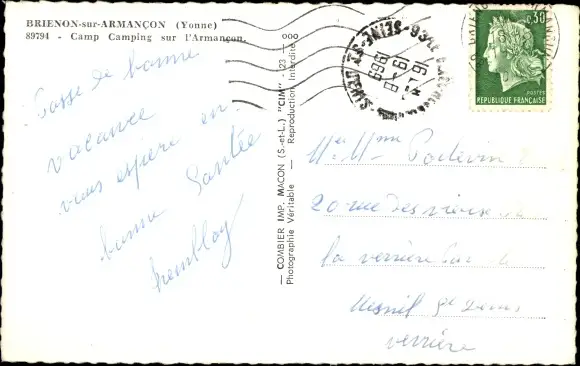 BRIENON-sur-ARMANÇON (Yonne)
89794 - Camp Camping sur l'Armançon.
Passe de bonne
vacance
vous espère en
bonne Santée
Tremblay
— COMBIER IMP. MACON (S.-et-L.) "CIM" — 123 — 000
Photographie Véritable — Reproduction Interdite
93 SEINE-ST-DENIS
16 H
9-8
1969
0,30
POSTES
RÉPUBLIQUE FRANÇAISE
Mer Mme Poitevin
20 rue des
la verrière
Mesnil St Denis
verrière